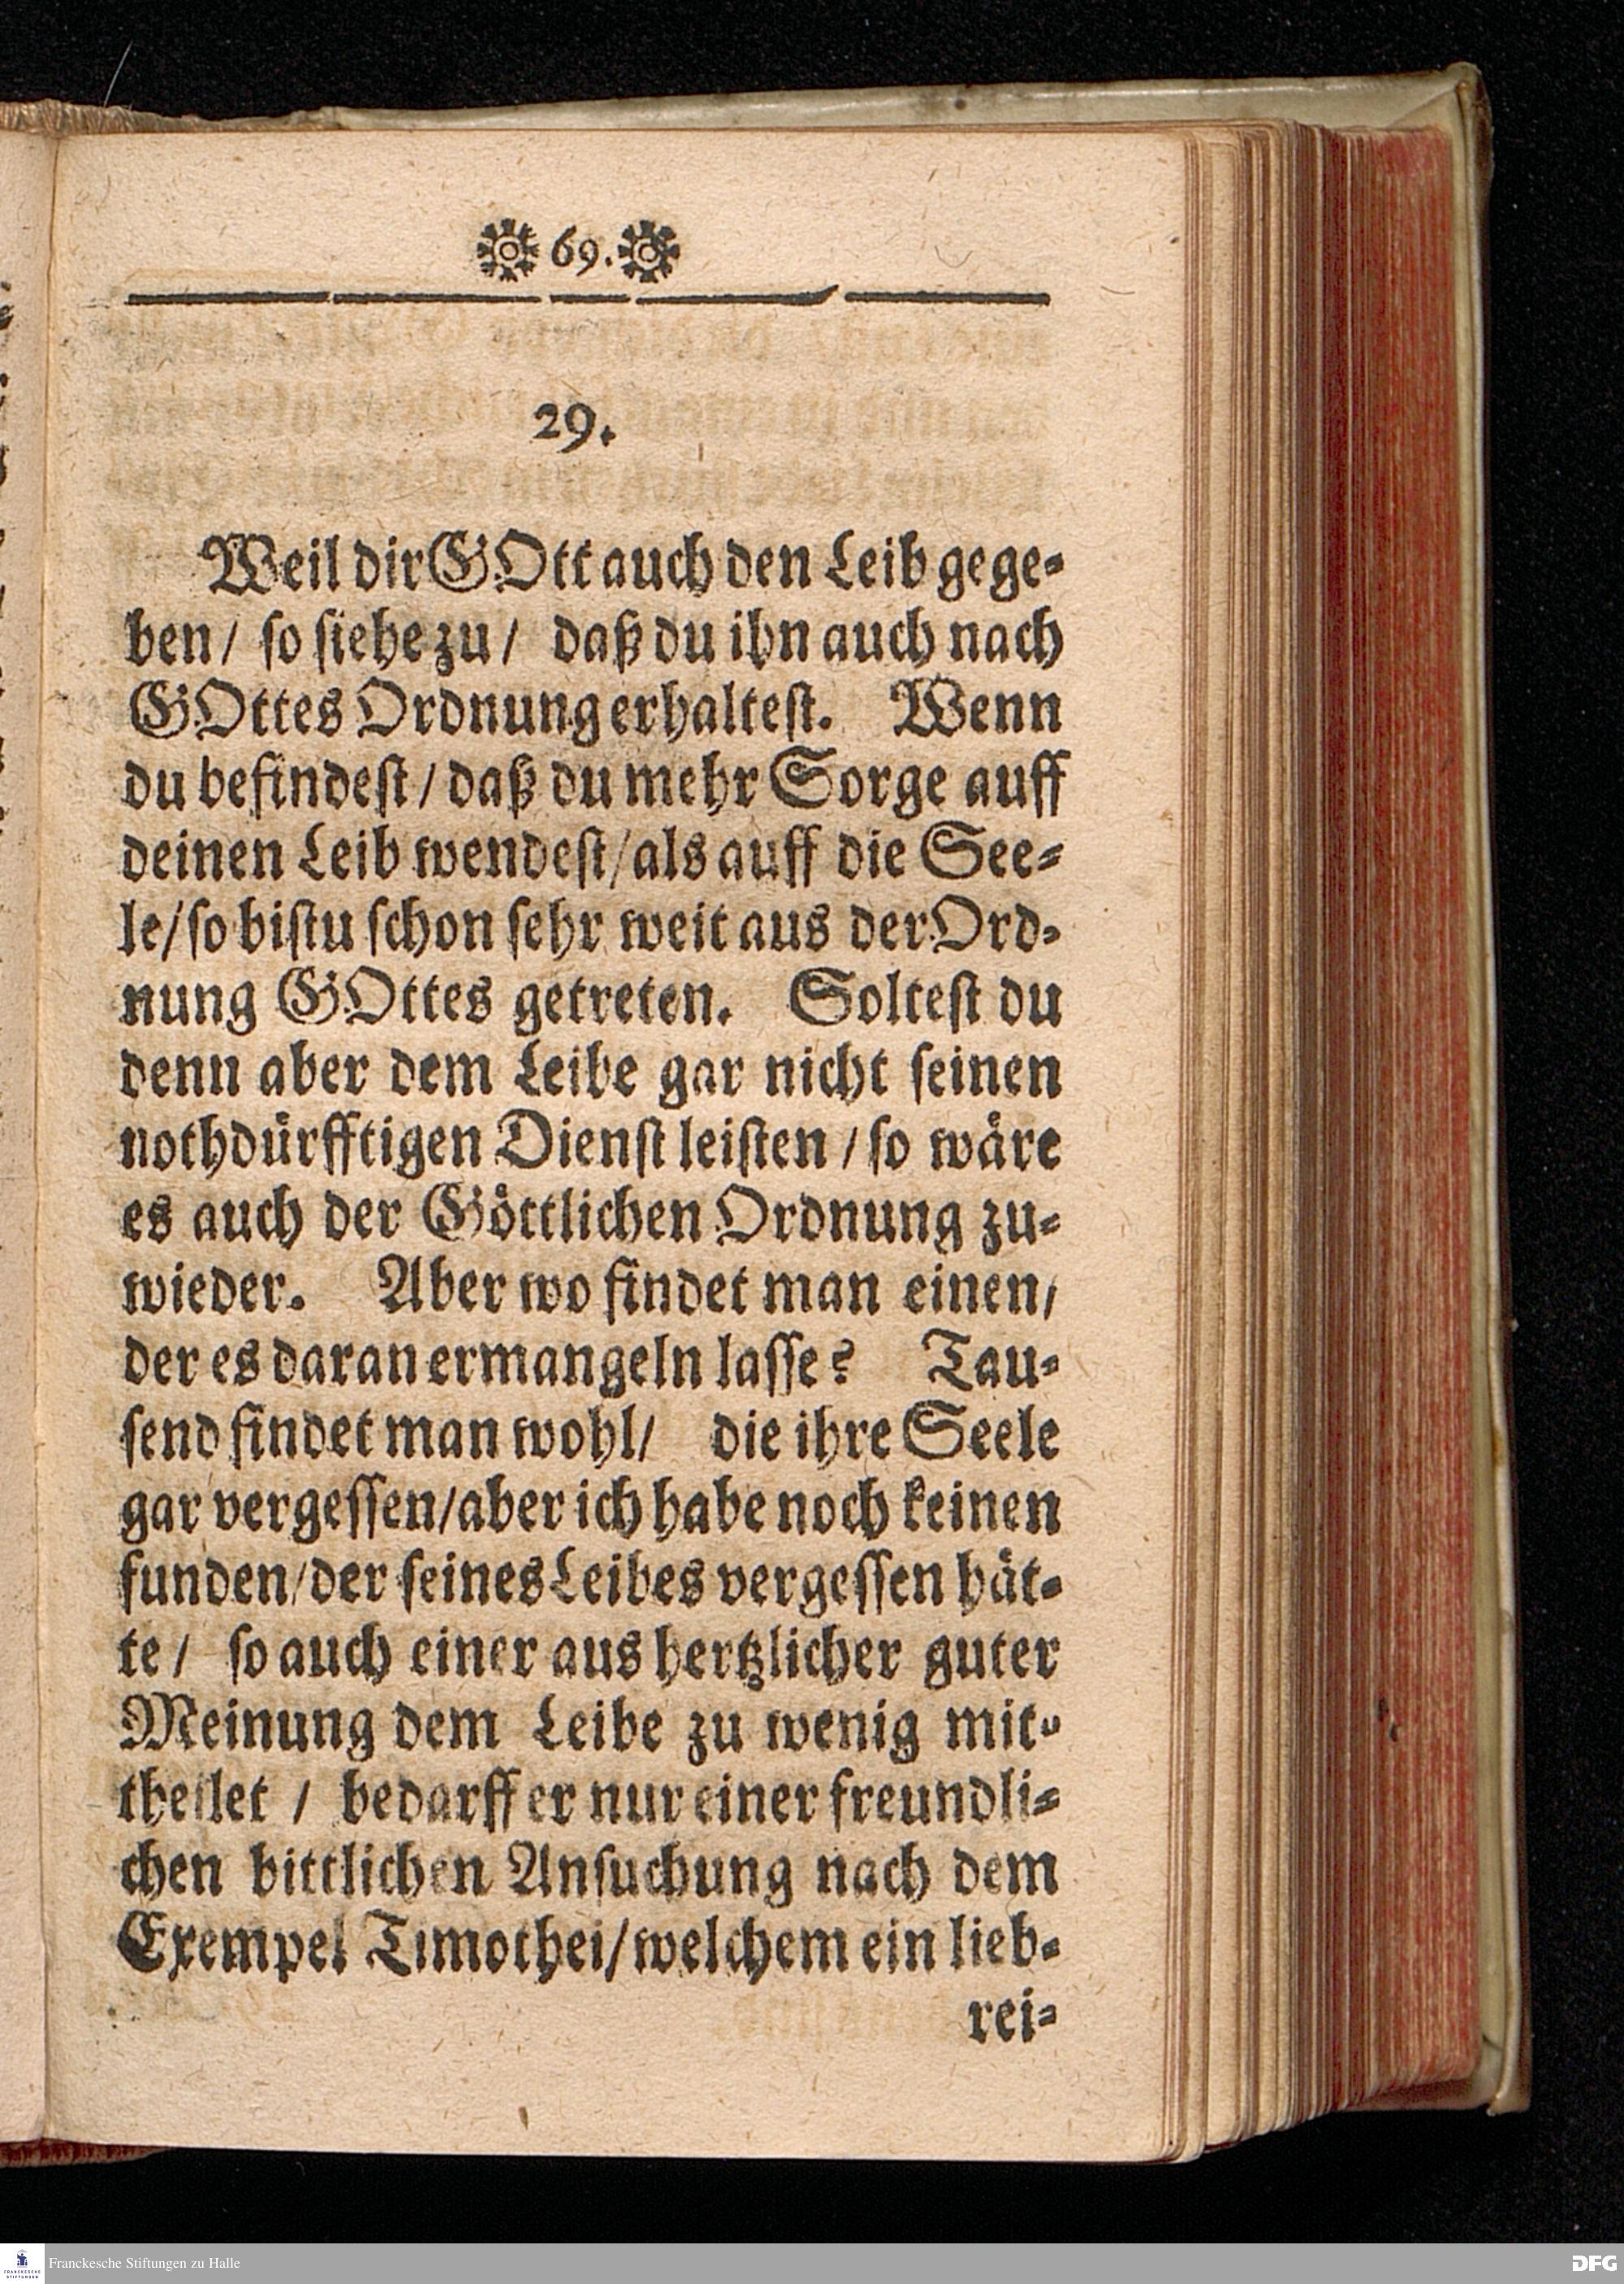 69.
29.
Weil dir GOtt auch den Leib gege-
ben/ so siehe zu/ daß du ihn auch nach
GOttes Ordnung erhaltest. Wenn
du befindest/ daß du mehr Sorge auff
deinen Leib wendest/ als auff die See-
le/ so bistu schon sehr weit aus der Ord-
nung GOttes getreten. Soltest du
denn aber dem Leibe gar nicht seinen
nothdürfftigen Dienst leisten/ so wäre
es auch der Göttlichen Ordnung zu-
wieder. Aber wo findet man einen/
der es daran ermangeln lasse? Tau-
send findet man wohl/ die ihre Seele
gar vergessen/ aber ich habe noch keinen
funden/ der seines Leibes vergessen hät-
te/ so auch einer aus hertzlicher guter
Meinung dem Leibe zu wenig mit-
theilet/ bedarff er nur einer freundli-
chen bittlichen Ansuchung nach dem
Exempel Timothei/ welchem ein lieb-
rei-
FRANCKESCHE STIFTUNGEN
Franckesche Stiftungen zu Halle
DFG